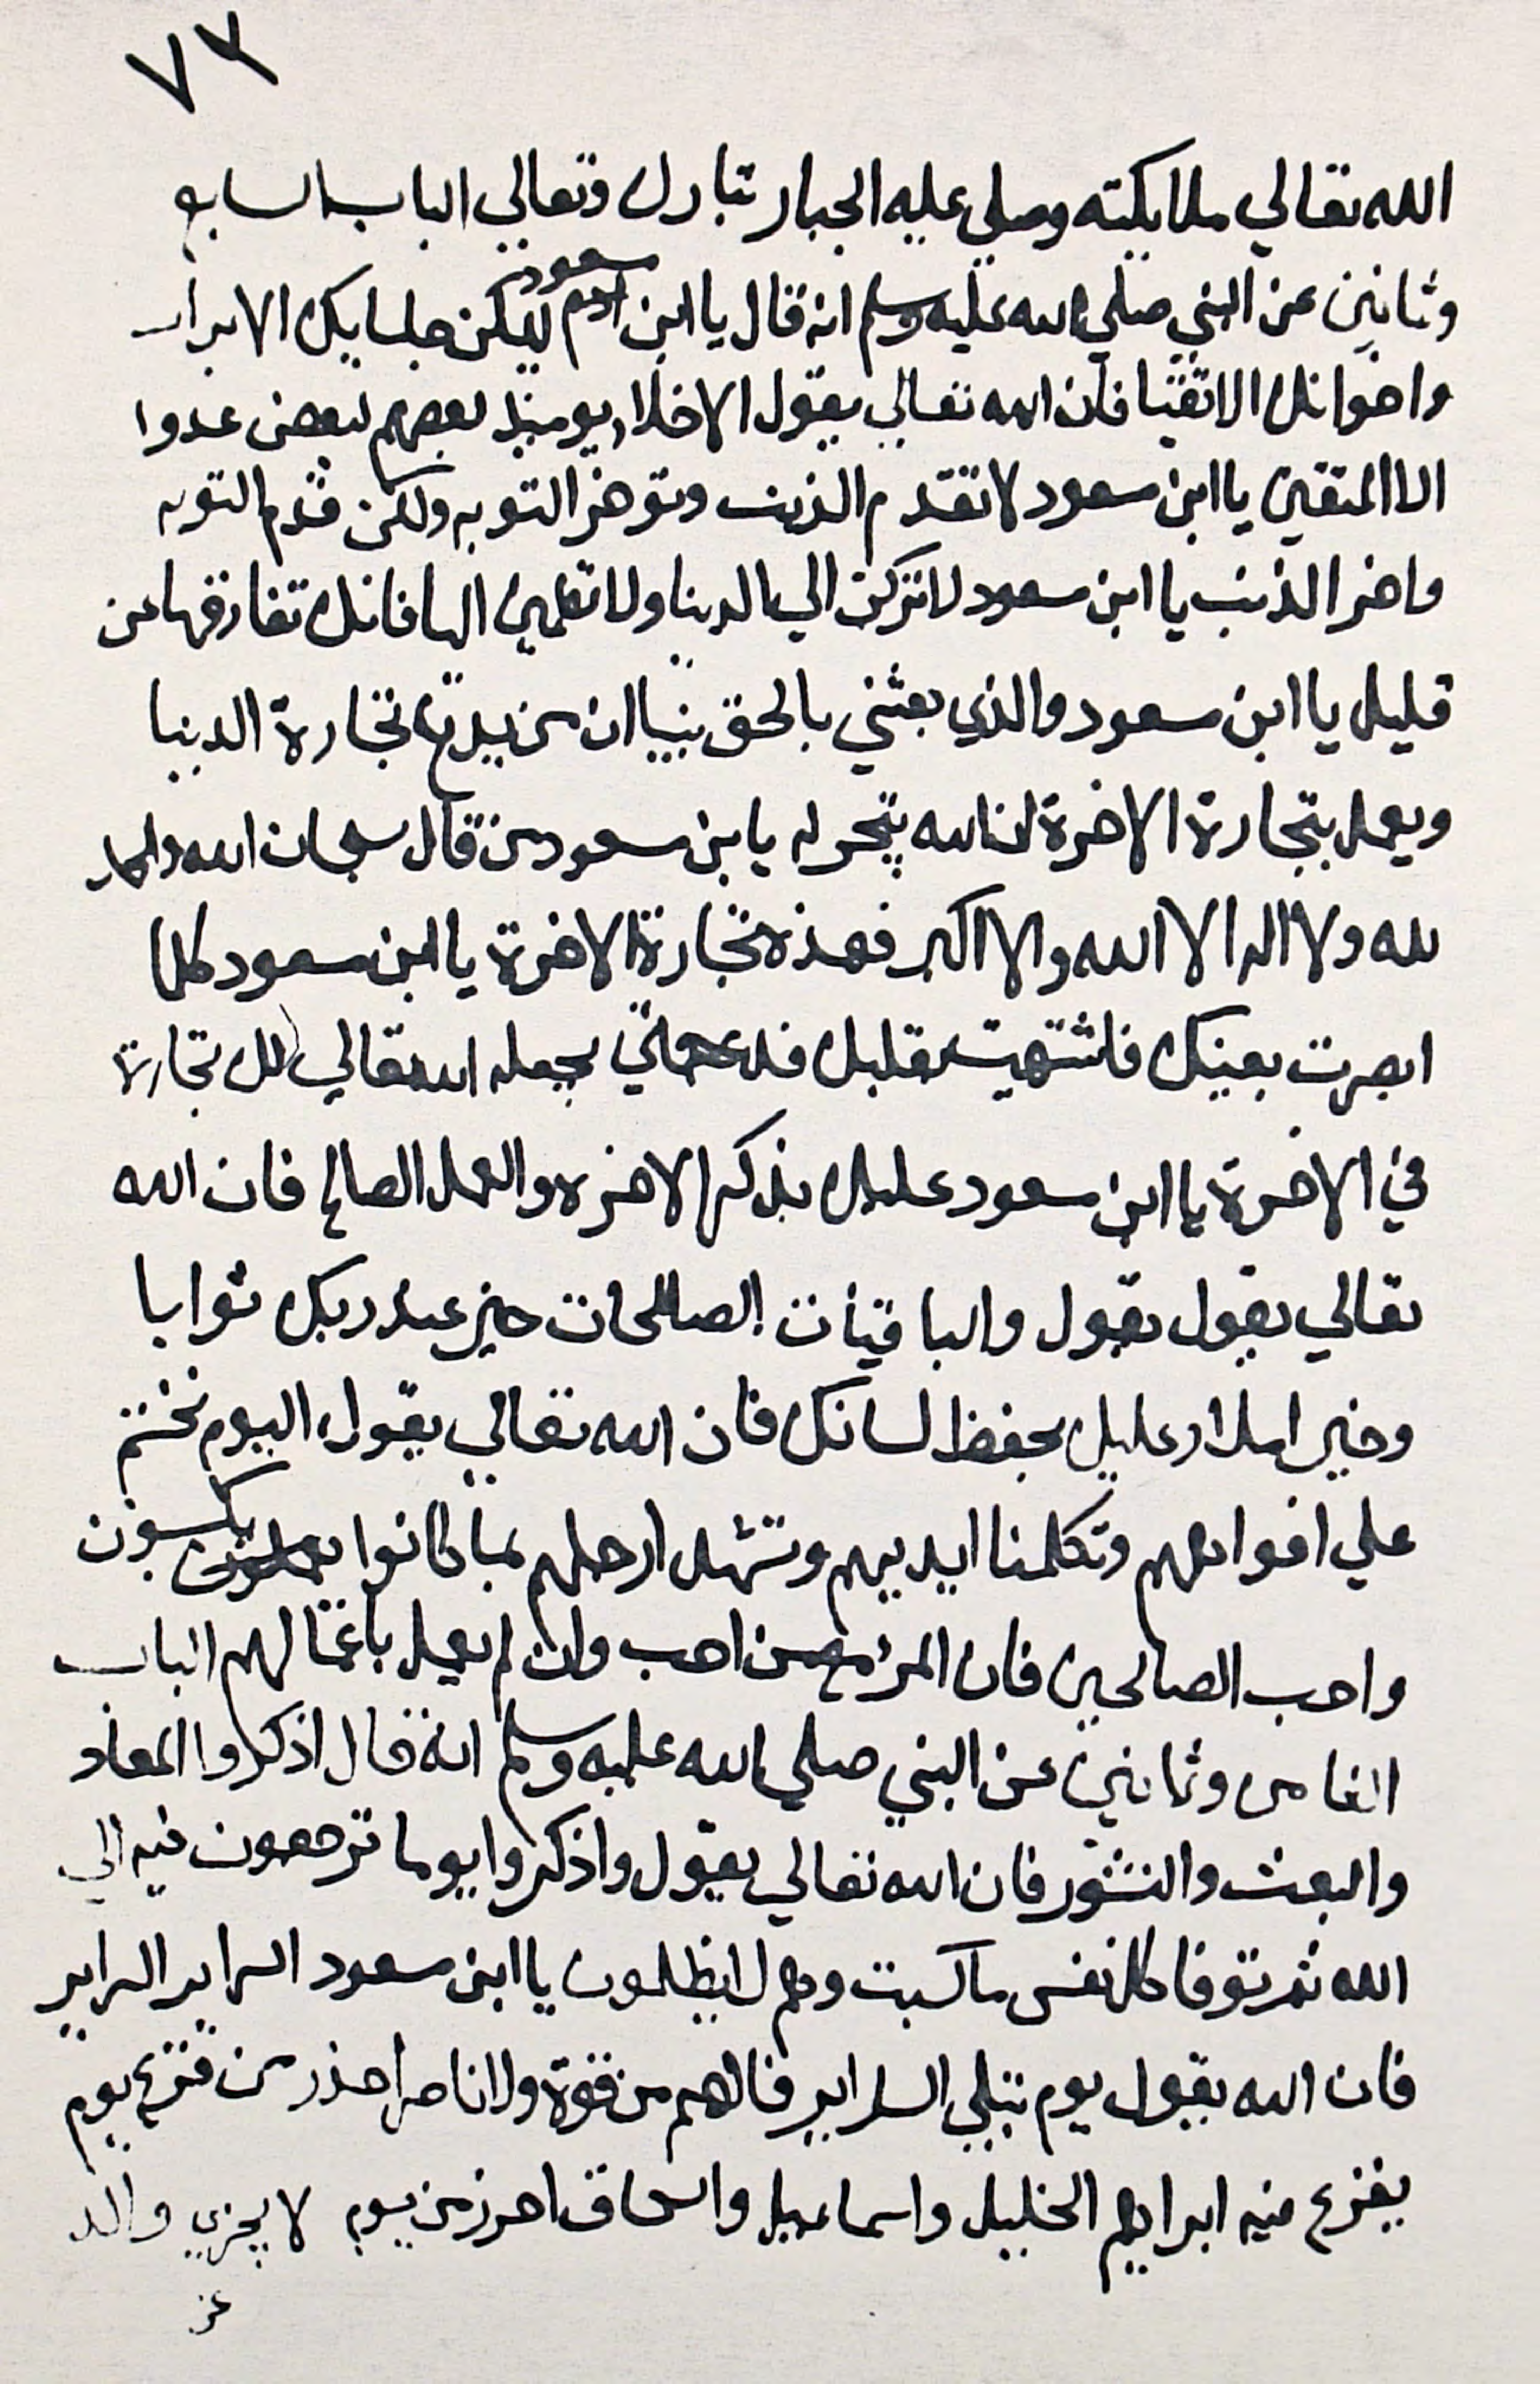 ٧٣
الله تعالي ملايكته وصلي عليه الجبار تبارك وتعالي الباب السابع
وثمانين عن النبي صلي الله عليه وسلم انه قال يا ابن ادم سعود ليكن جلسايك الابرار
واخوانك الاتقيا فان الله تعالي يقول الاخلاء يوميذ بعضهم لبعض عدوا
الا المتقين يا ابن سعود لا تقدم الذنب وتوخر التوبه ولكن قدم التوبه
واخر الذنب يا ابن سعود لا تركن الي الدينا ولا تطمين اليها فانك تفارقها عن
قليل يا ابن سعود والذي بعثني بالحق نبيا ان من يدع تجارة الدنيا
ويعمل بتجارة الاخرة ان الله يتجر له يا بن سعود من قال سبحان الله والحمد
لله ولا اله الا الله والا اكبر فهذه تجارة الاخرة يا ابن سعود كلما
ابصرت بعينك فاشتهيت قلبك يجعله الله تعالي لك تجارة
في الاخرة يا ابن سعود عليك بذكر الاخره والعمل الصالح فان الله
تعالي يقول يقول والباقيات الصالحات خير عند ربك ثوابا
وخير املا وعليك بحفظ لسانك فان الله تعالي يقول اليوم نختم
علي افواههم وتكلمنا ايديهم وتشهد ارجلهم بما كانوا يعملون يكسبون
واحب الصالحين فان المرء مع من احب وان لم يعمل باعمالهم الباب
الثامن وثمانين عن النبي صلي الله عليه وسلم انه قال اذكروا المعاد
والبعث والنشور فان الله تعالي يقول واذكروا يوما ترجعون فيه الي
الله ثم توفا كل نفس ما كسبت وهم لا يظلمون يا ابن سعود السراير السراير
فان الله يقول يوم تبلي السراير فما لهم من قوة ولا ناصر احذر من فزع يوم
يفزع منه ابراهيم الخليل واسماعيل واسحاق احرز من يوم لا يجزي والد
عن